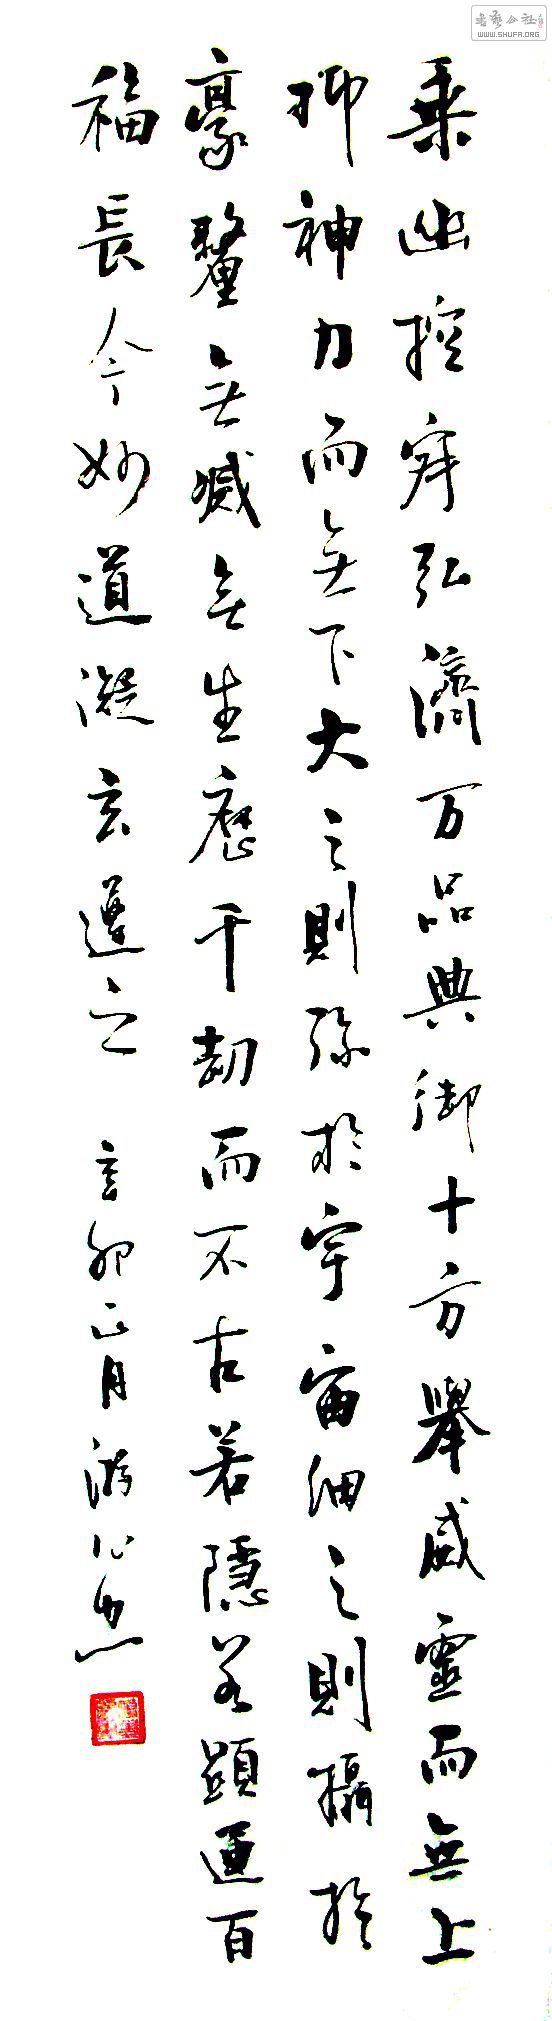 書藝公社
WWW.SHUFA.ORG
乗幽控寂弘濟万品典御十方舉威靈而無上
抑神力而无下大之則彌於宇宙細之則攝於
豪釐无滅无生歷千劫而不古若隱若顯運百
福長今妙道凝玄遵之 辛卯正月游